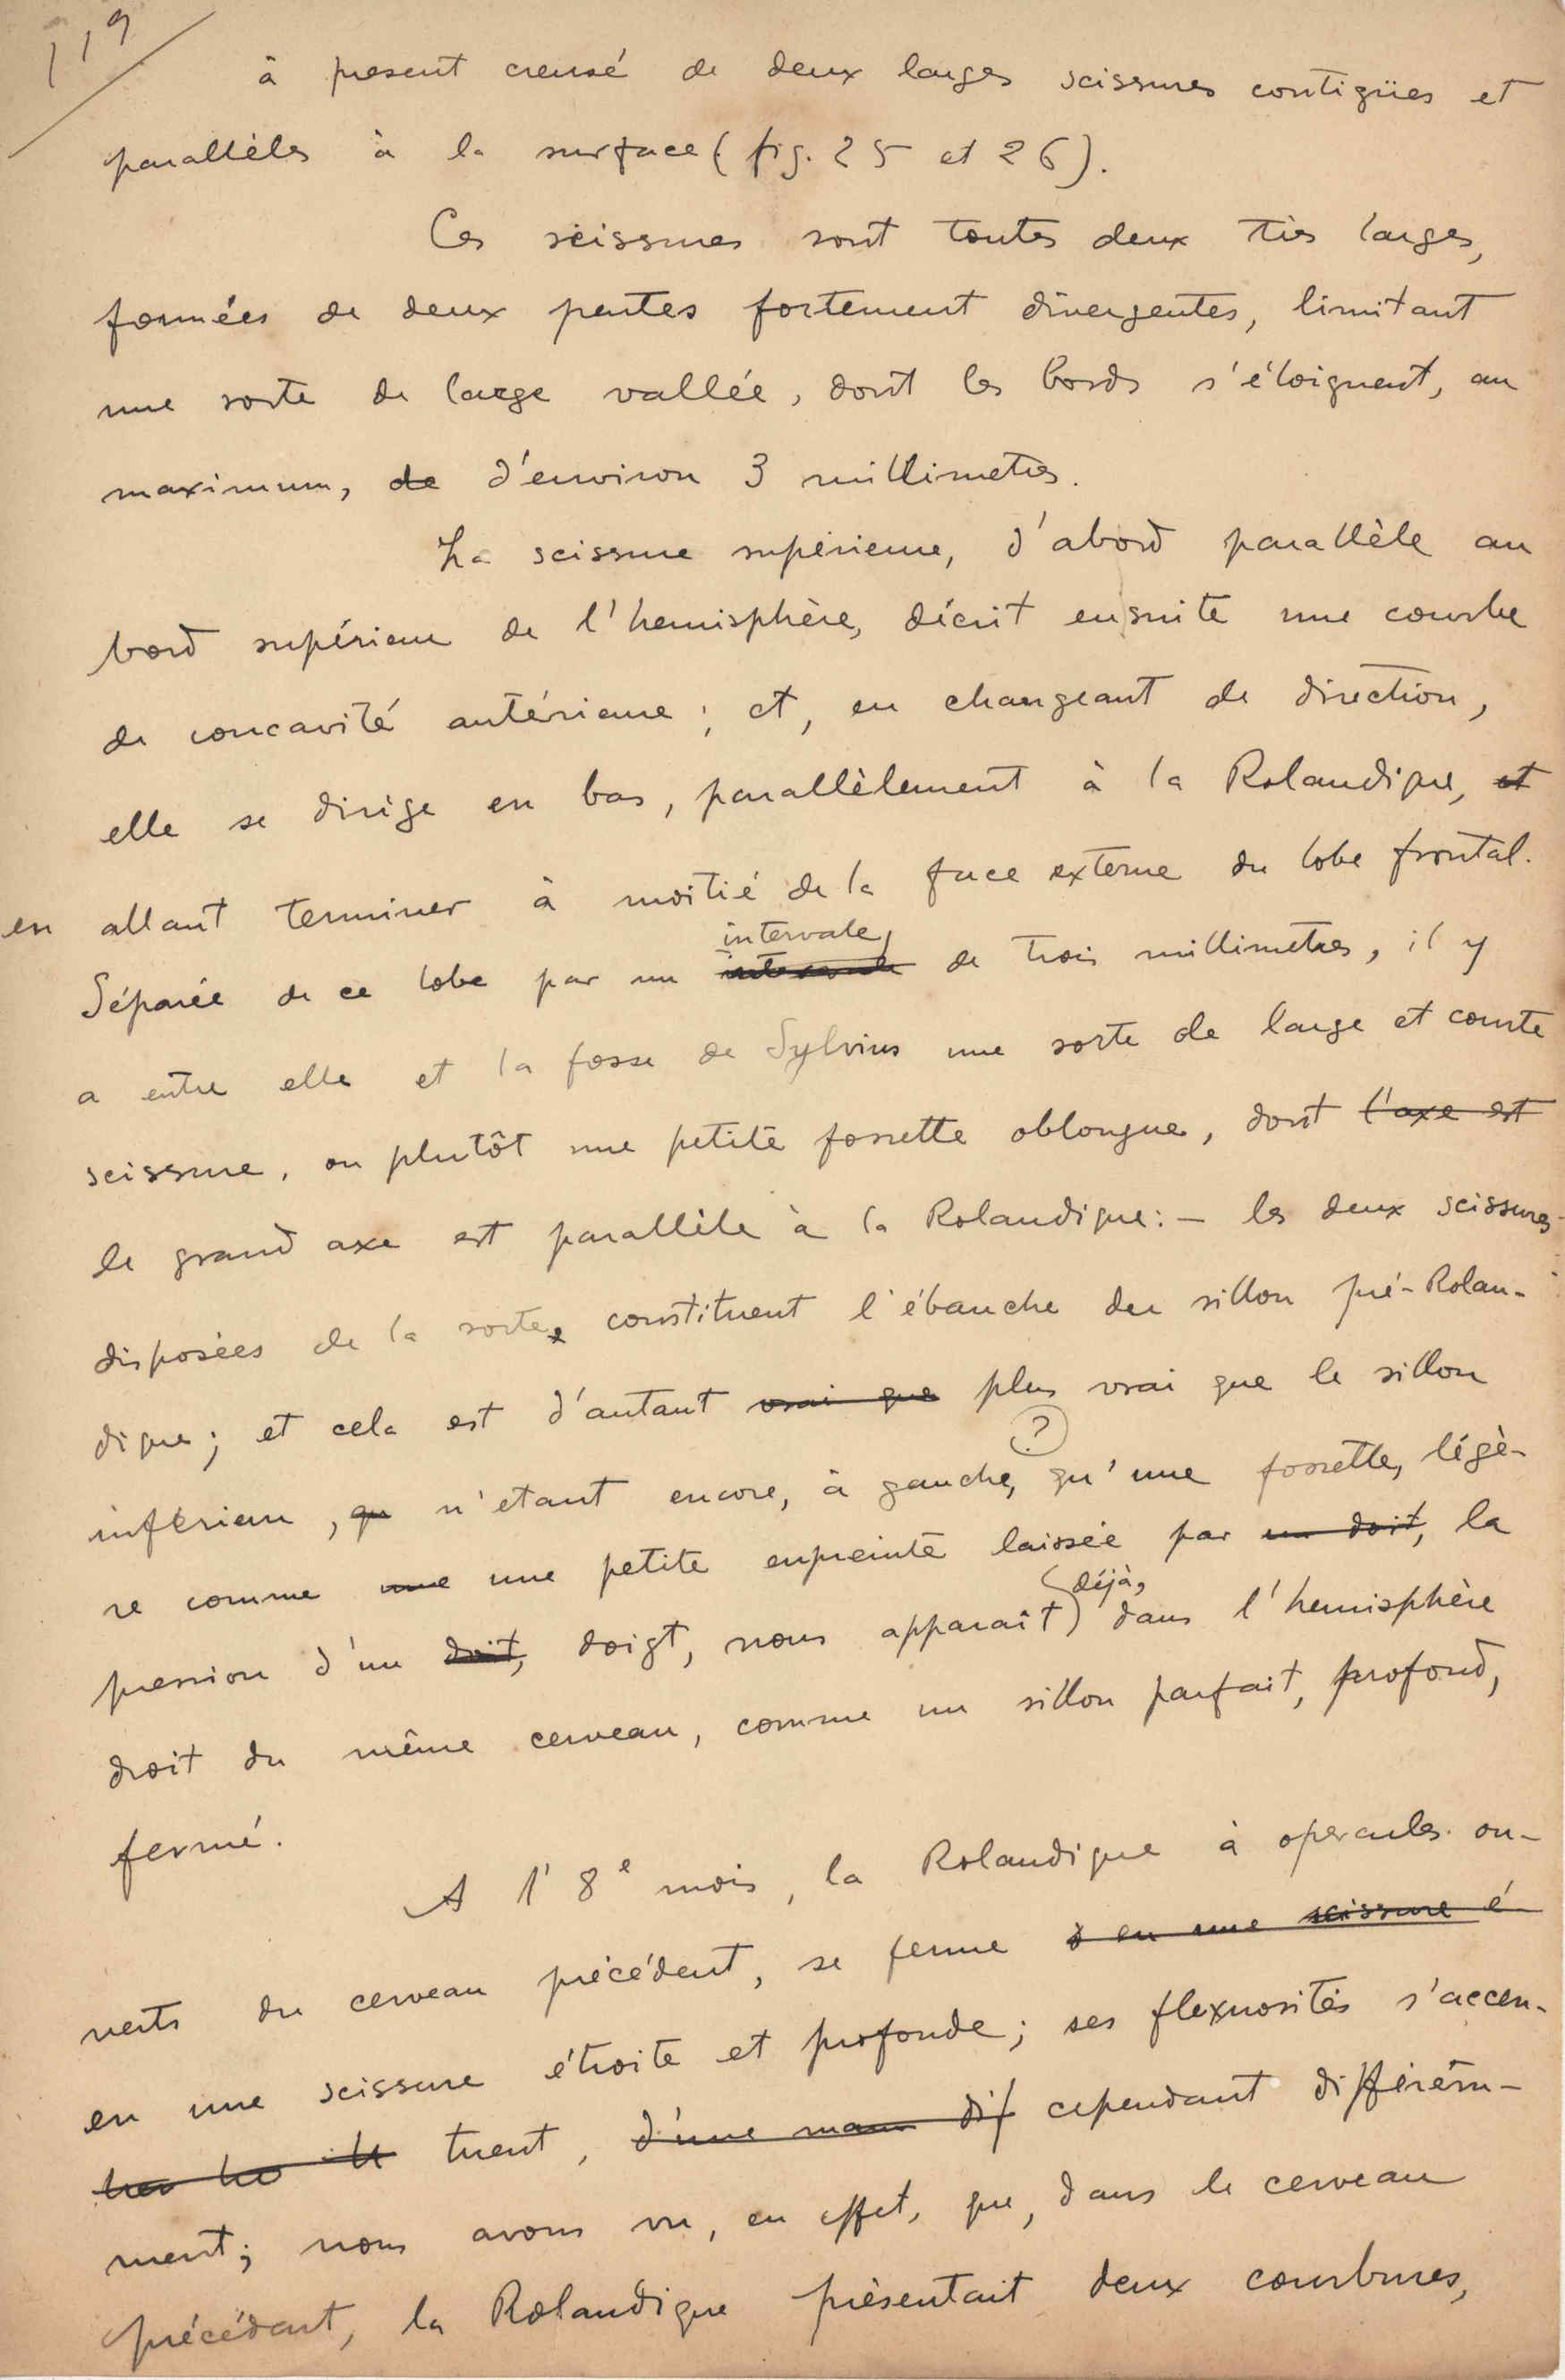 119
à present creusé de deux larges scissures contigües et
parallèles à la surface (fig. 25 et 26).
Ces scissures sont toutes deux très larges,
formées de deux pentes fortement divergentes, limitant
une sorte de large vallée, dont les bords s'éloignent, au
maximum, de d'environ 3 millimetres.
La scissure supérieure, d'abord parallèle au
bord supérieur de l'hemisphère, décrit ensuite une courbe
de concavité antérieure ; et, en changeant de direction,
elle se dirige en bas, parallèlement à la Rolandique, et
en allant terminer à moitié de la face externe du lobe frontal.
intervale,
Séparée de ce lobe par un de trois millimetres, il y
a entre elle et la fosse de Sylvius une sorte de large et courte
scissure, ou plutôt une petite fossette oblongue, dont l'axe est
le grand axe est parallèle à la Rolandique : – les deux scissures
disposées de la sorte, constituent l'ébauche du sillon pré-Rolan-
dique ; et cela est d'autant vrai que plus vrai que le sillon
(?)
inférieur, qu n'etant encore, à gauche, qu'une fossette, légè-
re comme une une petite enpreinte laissée par un doit, la
déjà,
pression d'un doit, doigt, nous apparaît) dans l'hemisphère
droit du même cerveau, comme un sillon parfait, profond,
fermé.
A l' 8e mois, la Rolandique à opercules ou-
verts du cerveau précédent, se ferme d en une scissure é
en une scissure étroite et profonde ; ses flexuosités s'accen-
tuent, d'une man dif cependant différém-
ment ; nous avons vu, en effet, que, dans le cerveau
précédent, la Rolandique présentait deux courbures,